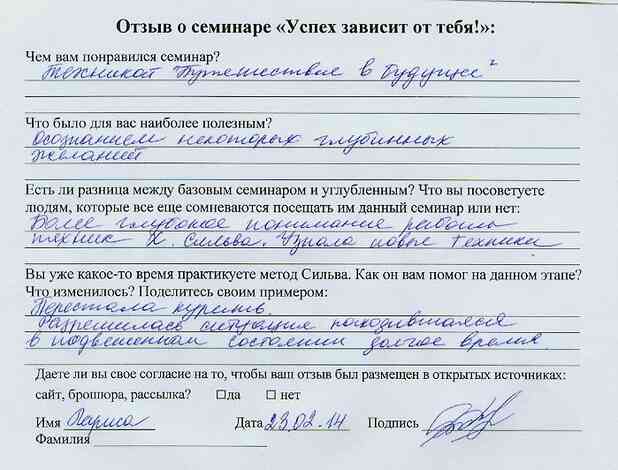 Отзыв о семинаре «Успех зависит от тебя!»:
Чем вам понравился семинар?
Техникой "Путешествие в будущее"
Что было для вас наиболее полезным?
Осознанием некоторых глубинных
желаний
Есть ли разница между базовым семинаром и углубленным? Что вы посоветуете
людям, которые все еще сомневаются посещать им данный семинар или нет:
Более глубокое понимание работы
техник Х. Сильва. Узнала новые техники
Вы уже какое-то время практикуете метод Сильва. Как он вам помог на данном этапе?
Что изменилось? Поделитесь своим примером:
Перестала курить.
Разрешилась ситуация находившаяся
в подвешенном состоянии долгое время.
Даете ли вы свое согласие на то, чтобы ваш отзыв был размещен в открытых источниках:
сайт, брошюра, рассылка? □да □ нет
Имя Лариса Дата 23.02.14 Подпись
Фамилия